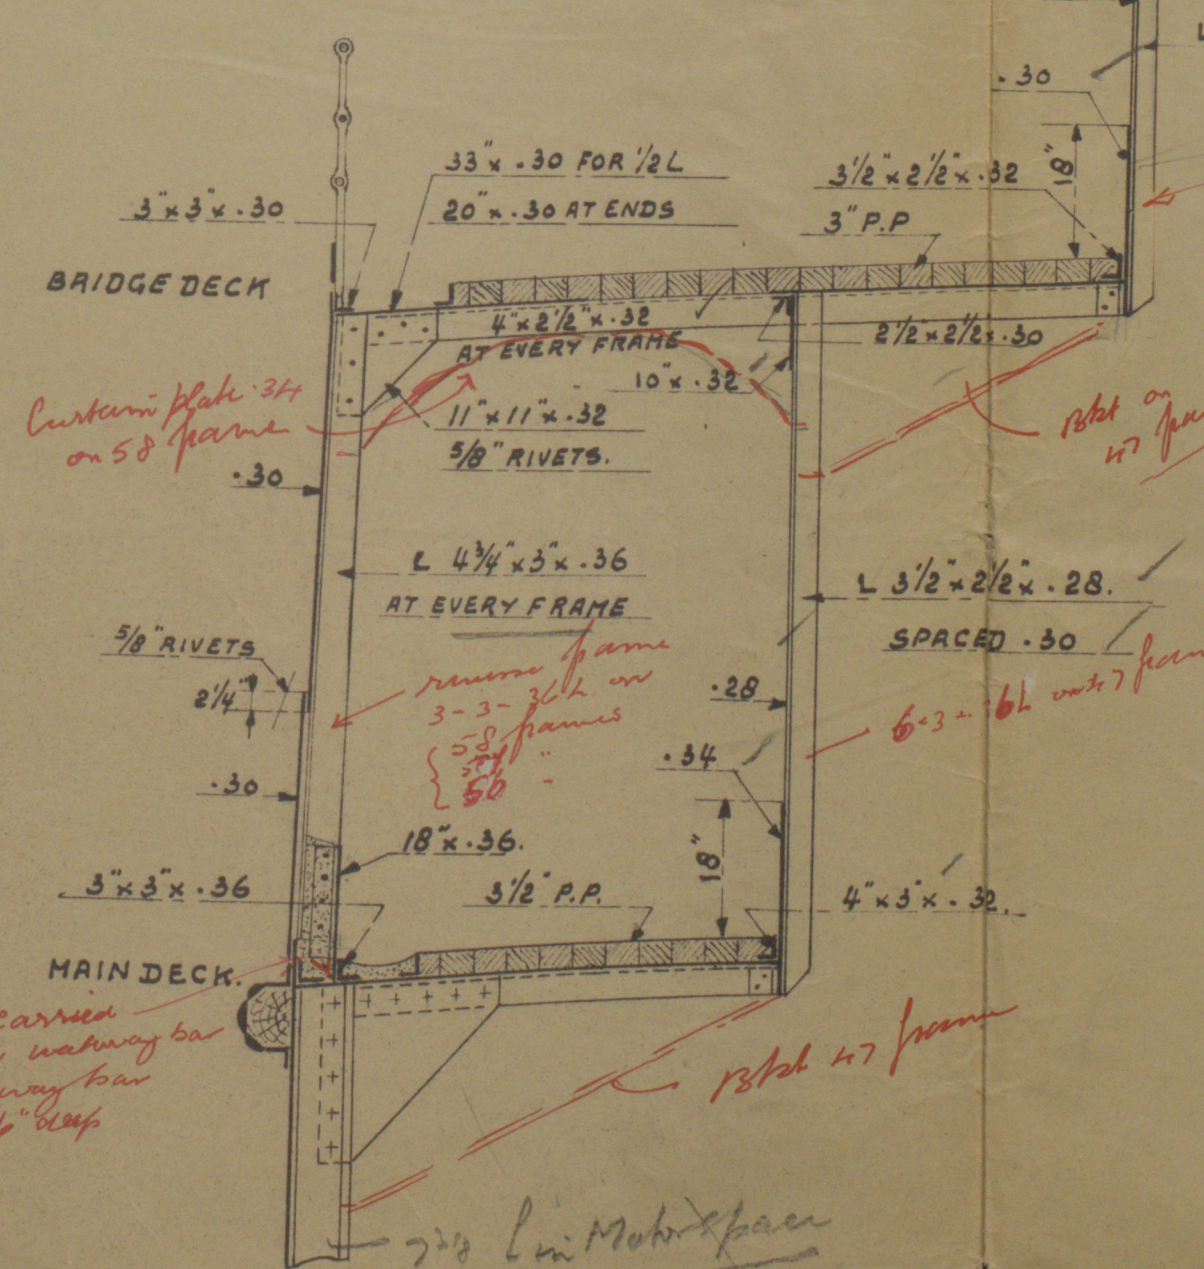 L
.30
33" x .30 FOR 1/2 L
3 1/2" x 2 1/2" x .32
18"
3" x 3" x .30
20" x .30 AT ENDS
3" P.P
BRIDGE DECK
4" x 2 1/2" x .32
AT EVERY FRAME
2 1/2" x 2 1/2 x .30
10" x .32
Curtain plate .34
on 58 frame
11" x 11" x .32
5/8" RIVETS.
Bkt on
47
.30
L 4 3/4" x 3" x .36
AT EVERY FRAME
L 3 1/2" x 2 1/2" x .28.
SPACED .30
5/8" RIVETS
2 1/4"
reverse frame
3 - 3 - 36 L on
58 frames
57 "
56 "
.28
6 - 3 - 36 L on 47 fram
.30
.34
18" x .36.
18"
3" x 3" x .36
3 1/2" P.P.
4" x 3" x .32.
MAIN DECK.
carried
waterway bar
way bar
6" deep
Bkt 47 frame
in Motor Space